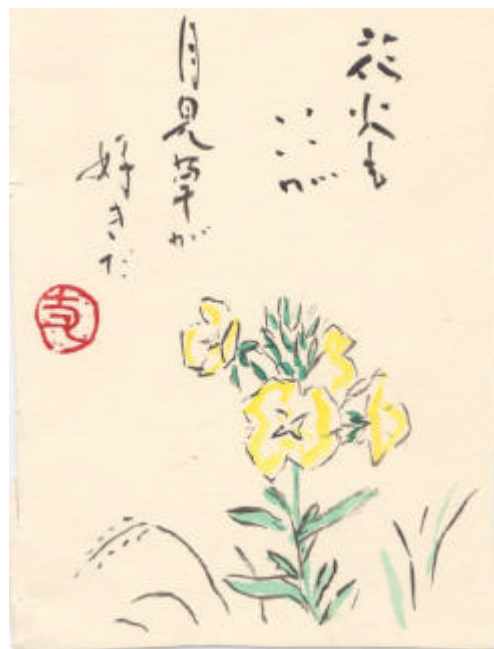 花火も
いいが
月見草が
好きだ